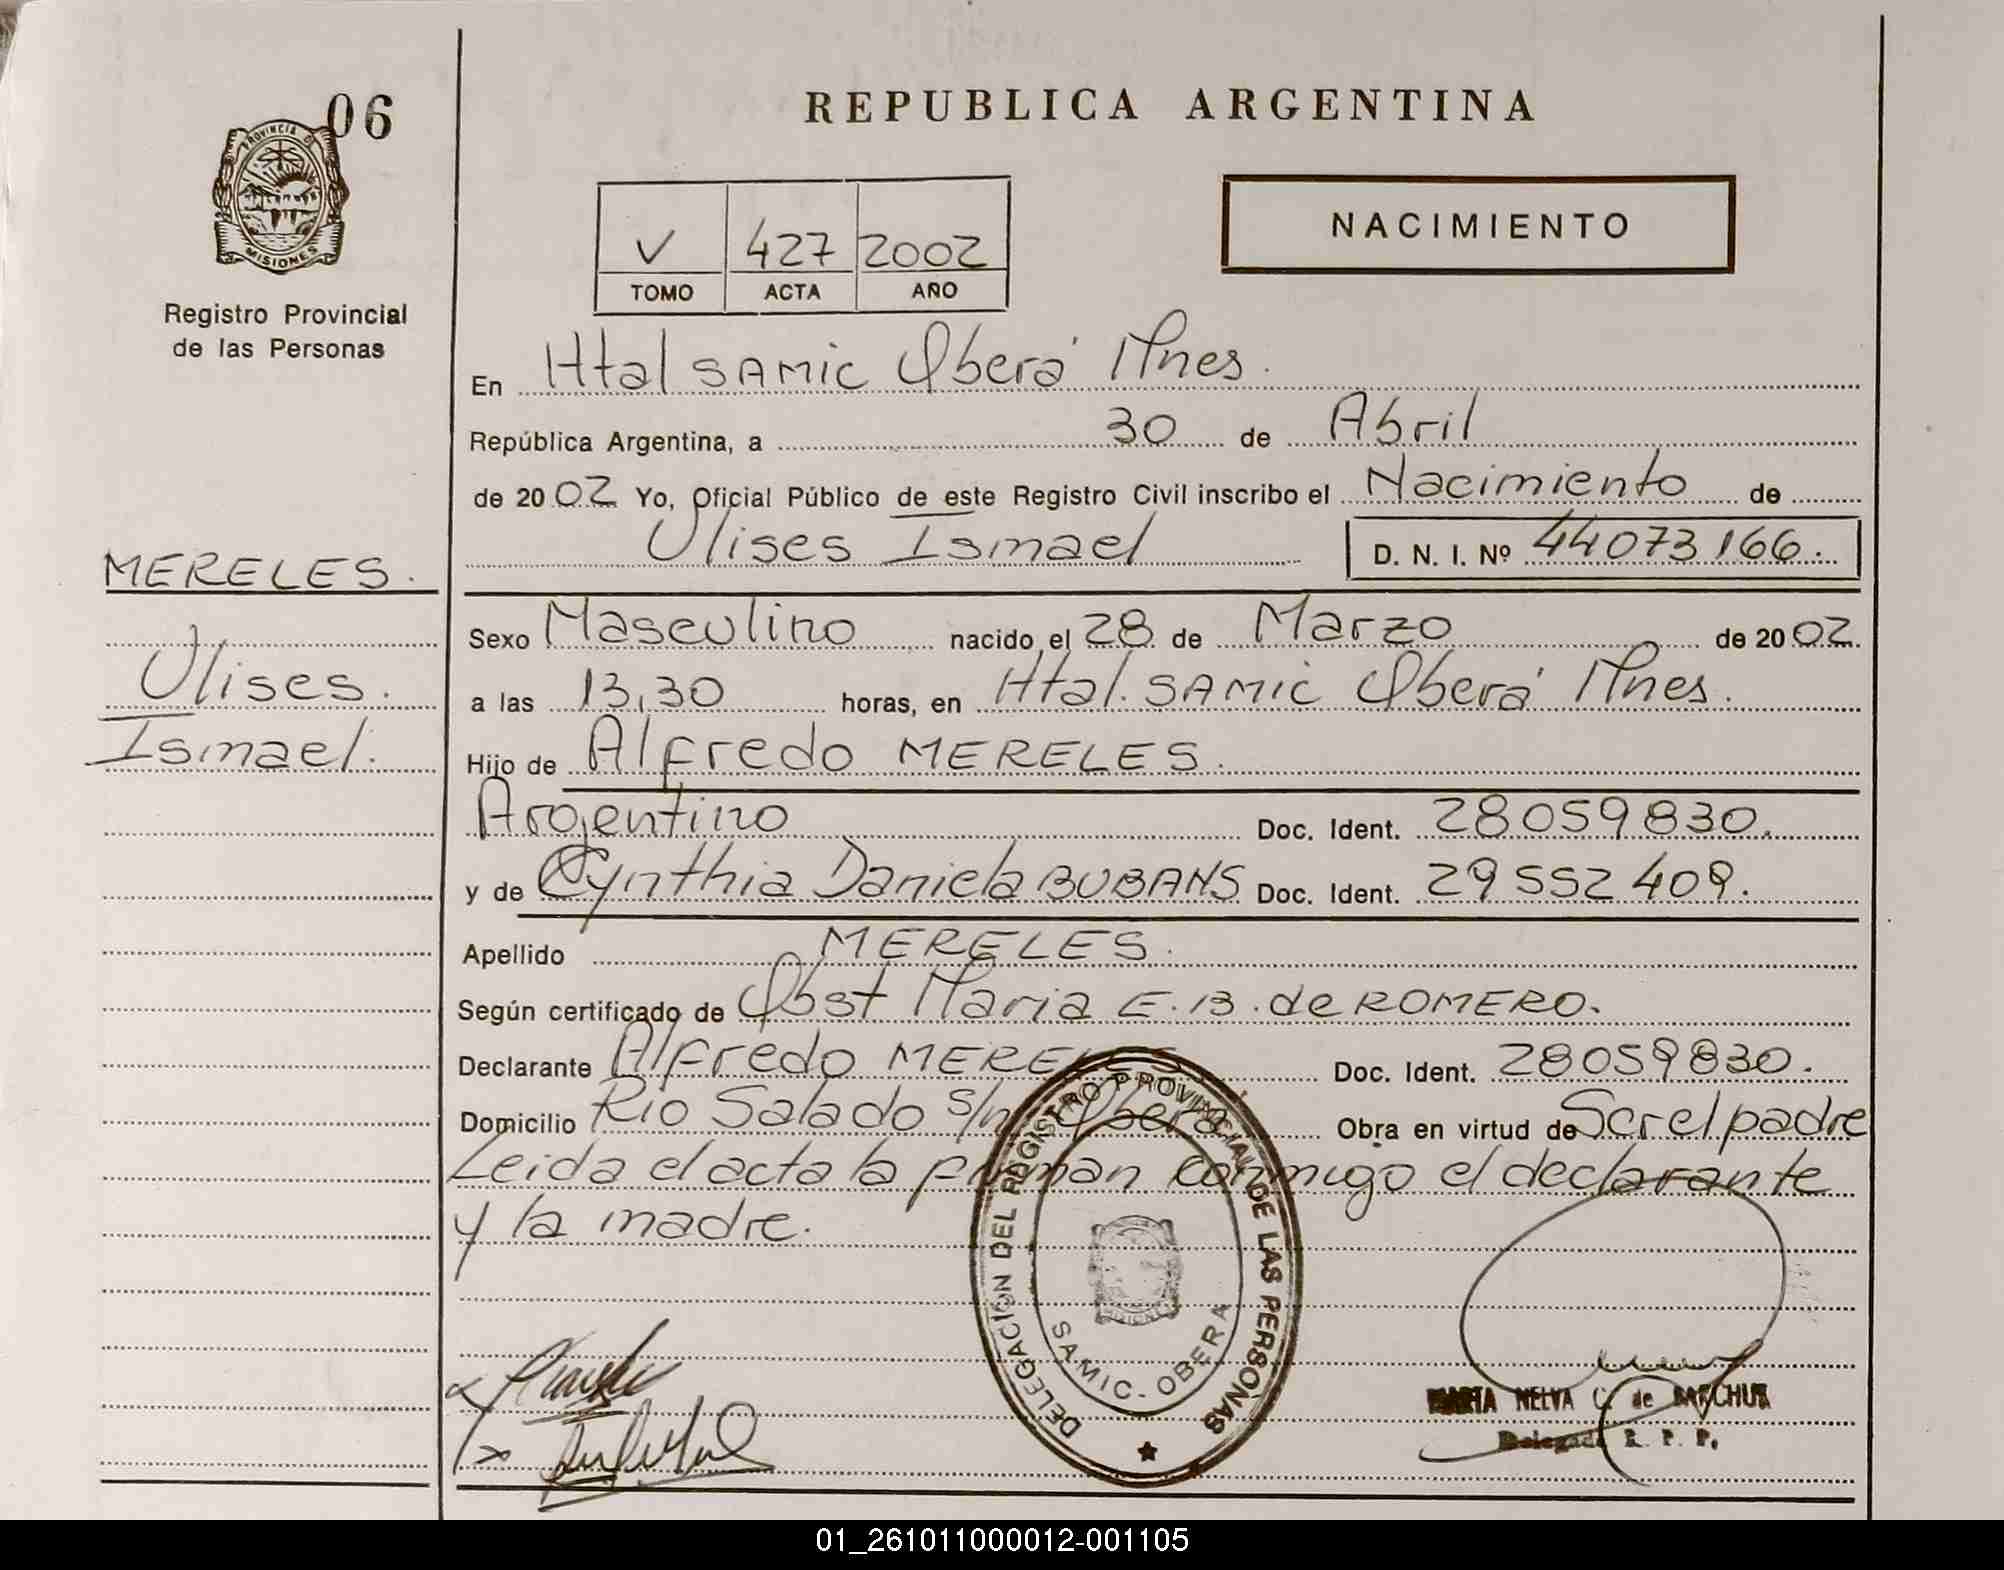 06
PROVINCIA DE
MISIONES
Registro Provincial
de las Personas
REPUBLICA ARGENTINA
V 427 2002
TOMO ACTA AÑO
NACIMIENTO
En Htal SAMIC Oberá Mnes.
República Argentina, a 30 de Abril
de 20 02 Yo, Oficial Público de este Registro Civil inscribo el Nacimiento de
Ulises Ismael D. N. I. Nº 44073166.
MERELES.
Ulises.
Ismael.
Sexo Masculino nacido el 28 de Marzo de 20 02.
a las 13,30 horas, en Htal. SAMIC Oberá Mnes.
Hijo de Alfredo MERELES.
Argentino Doc. Ident. 28059830.
y de Cynthia Daniela BUBANS Doc. Ident. 29552409.
Apellido MERELES.
Según certificado de Obst Maria E. B. de ROMERO.
Declarante Alfredo MERELES Doc. Ident. 28059830.
Domicilio Rio Salado s/n Oberá Obra en virtud de Scr el padre
Leida el acta la firman conmigo el declarante
y la madre.
DELEGACIÓN DEL REGISTRO PROVINCIAL DE LAS PERSONAS
SAMIC - OBERA
MARTA NELVA C. de BARCHUK
Delegada R. P. P.
01_261011000012-001105